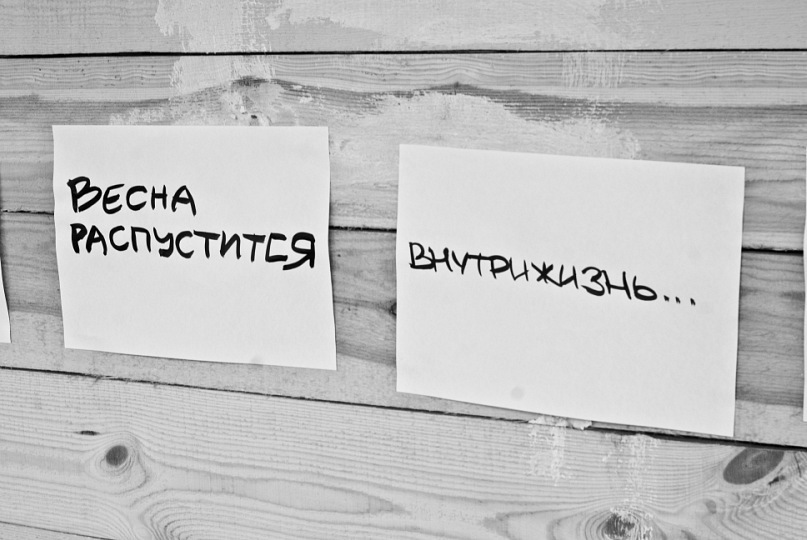 ВЕСНА
РАСПУСТИТСЯ
ВНУТРИЖИЗНЬ...